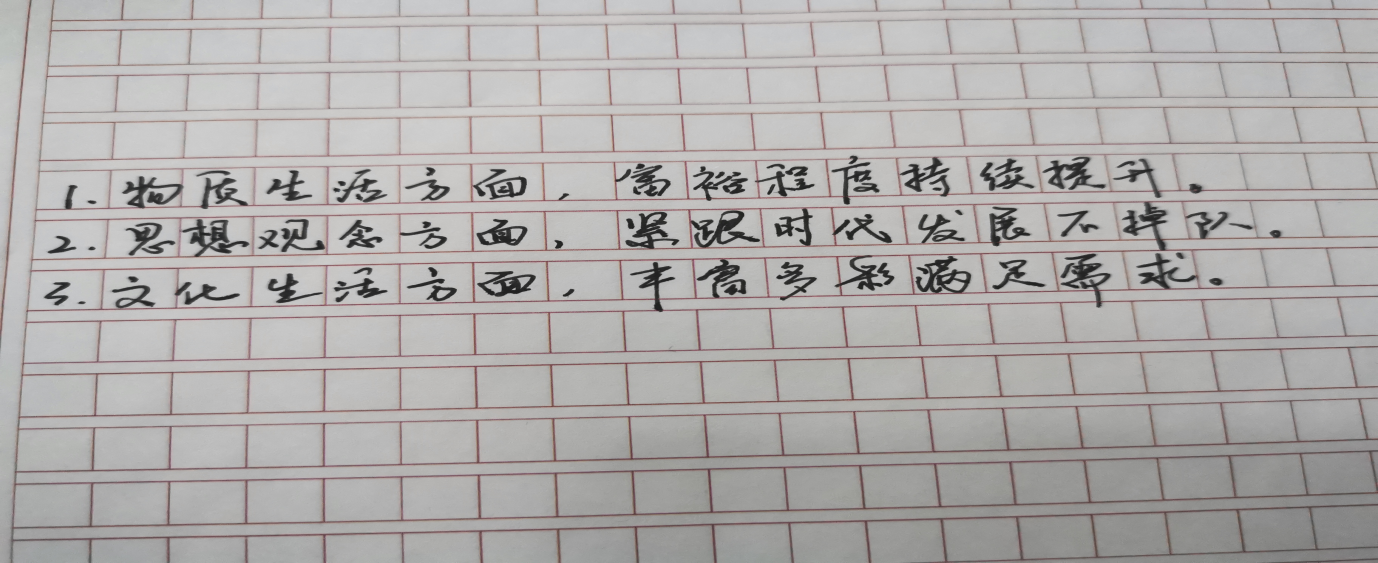 1.物质生活方面，富裕程度持续提升。
2.思想观念方面，紧跟时代发展不掉队。
3.文化生活方面，丰富多彩满足需求。